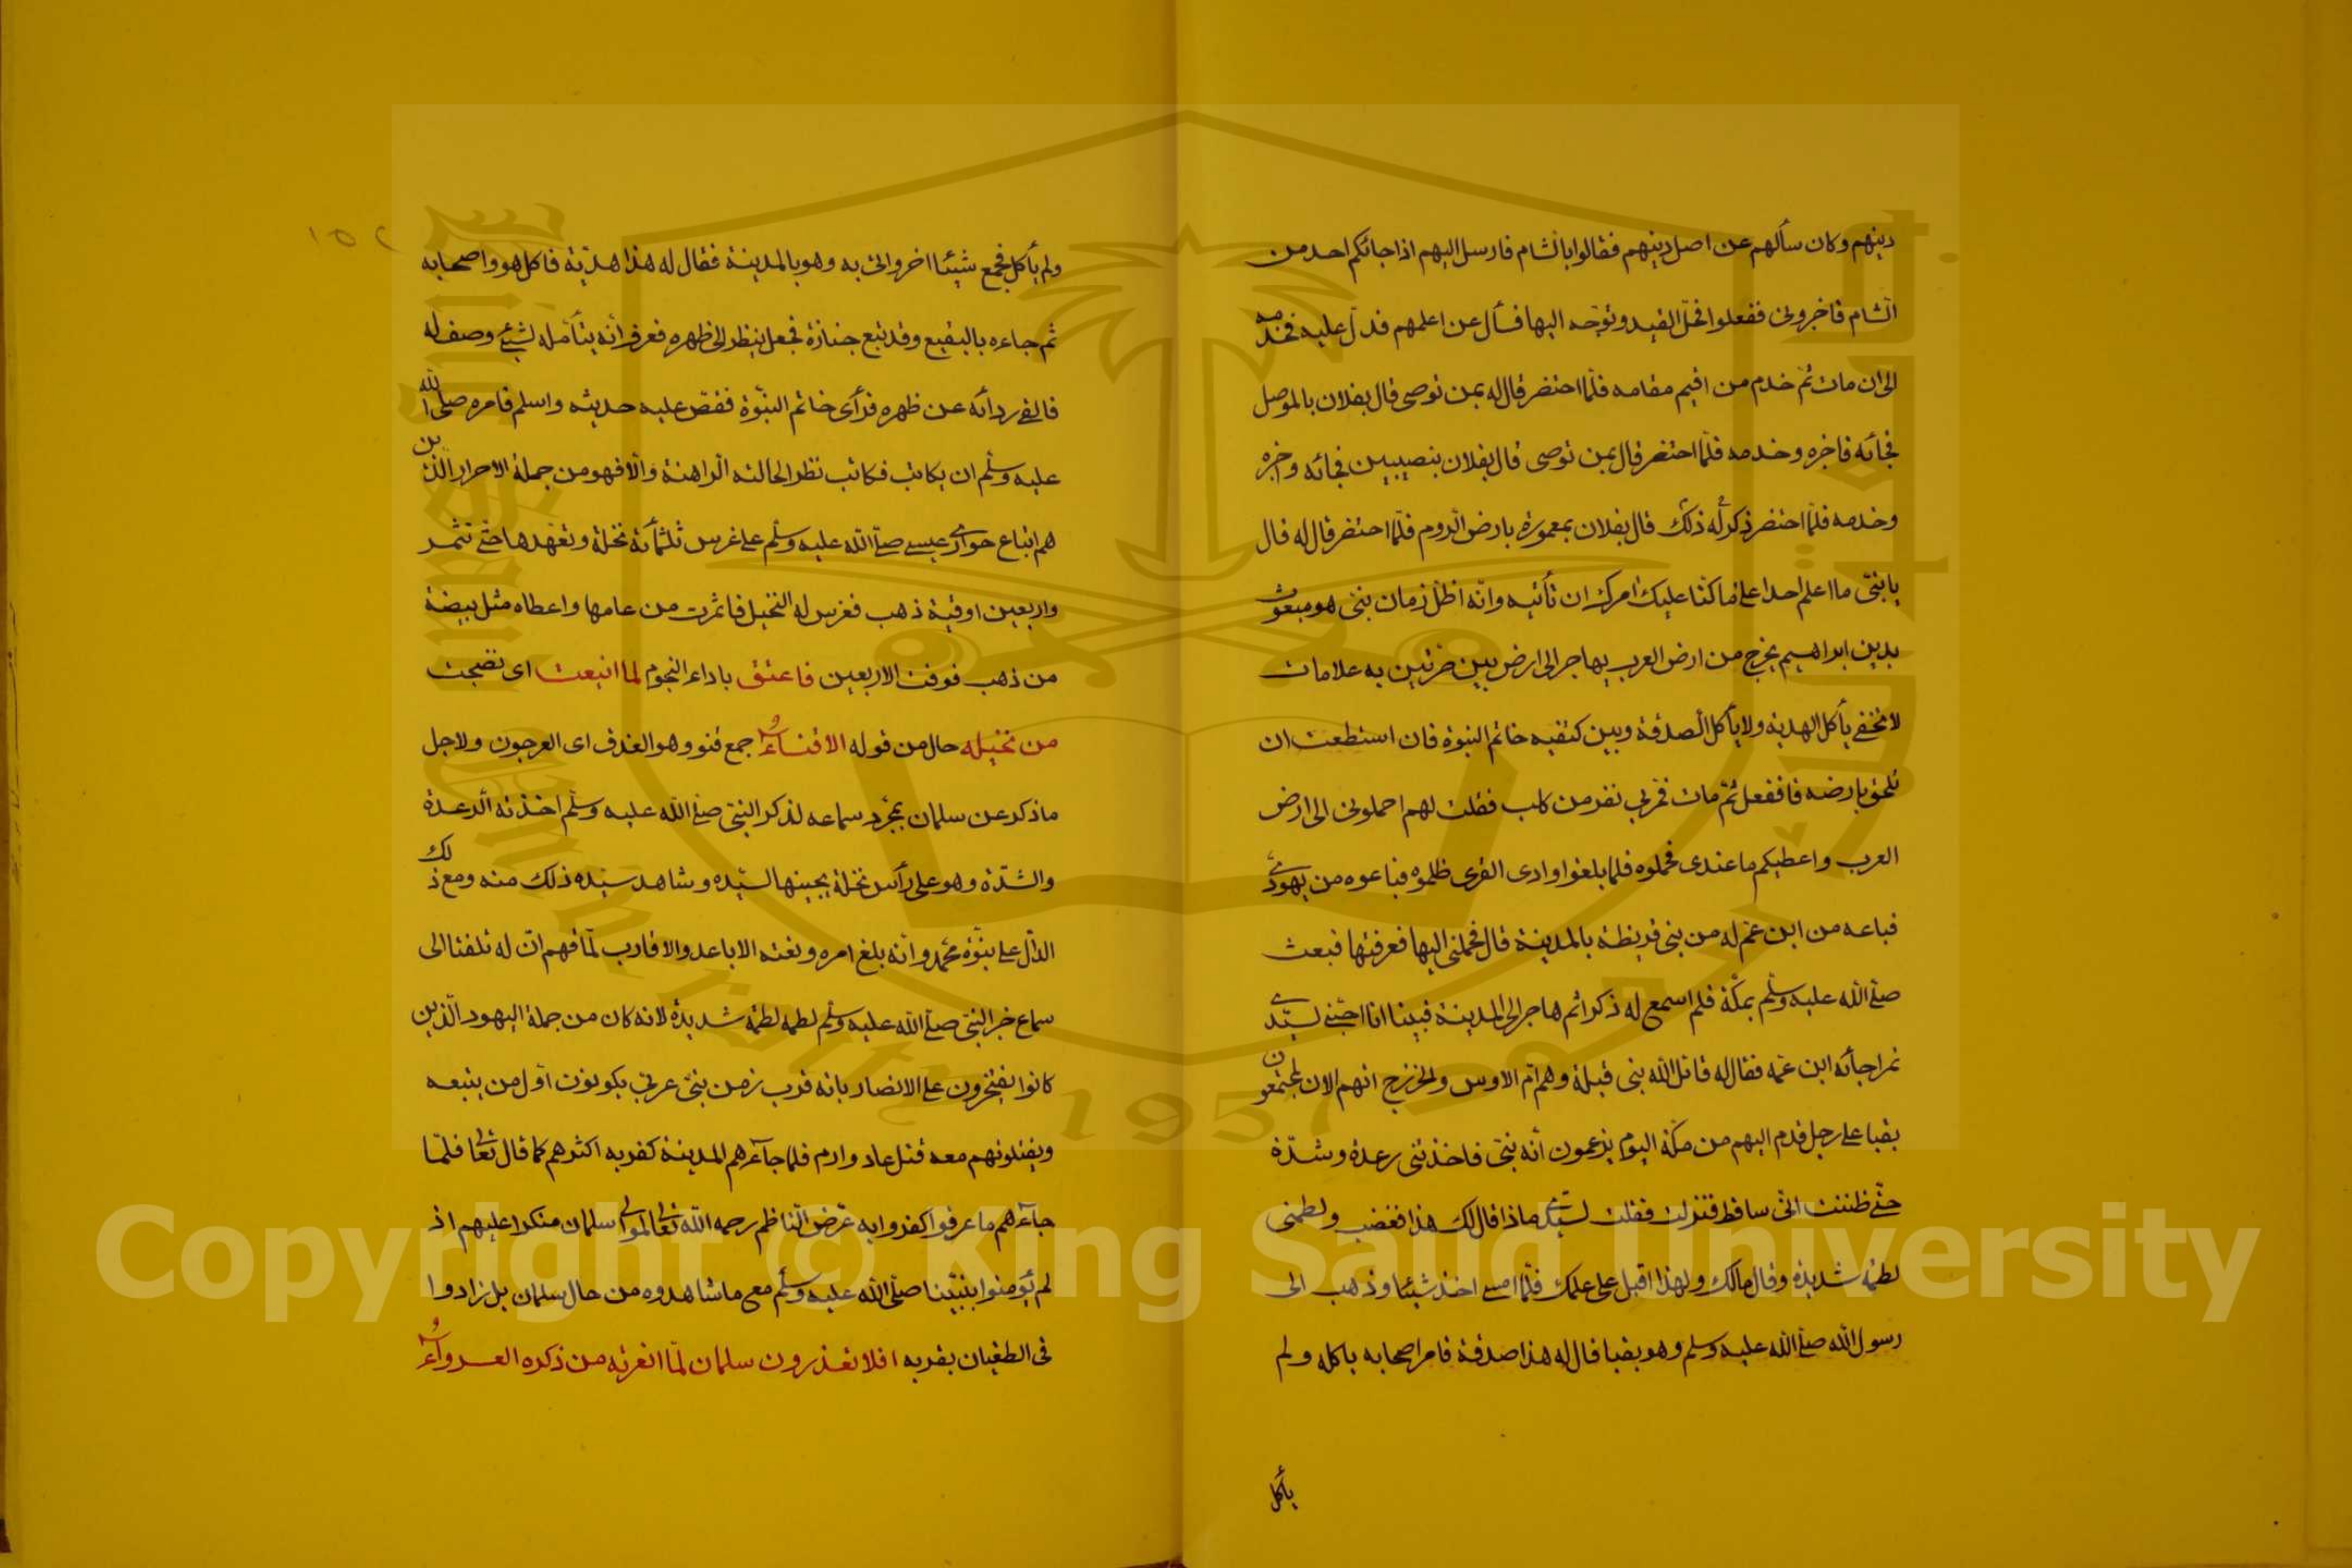 دينهم وكان سألهم عن اصل دينهم فقالوا بالشام فارسل اليهم اذا جائكم احد من
الشام فاخبروني ففعلوا فحلّ القيد وتوجّه اليها فسأل عن اعلمهم فدلّ عليه فخدمه
الى ان مات ثمّ خدم من اقيم مقامه فلمّا احتضر قال له بمن توصى قال بفلان بالموصل
فجأئه فاخبره وخدمه فلمّا احتضر قال بمن توصى قال بفلان بنصيبين فجائه واخبره
وخدمه فلمّا احتضر ذكر له ذلك قال بفلان بعمورة بارض الروم فلمّا احتضر قال له قال
يا بنيّ ما اعلم احدا على ما كنّا عليك امرك ان تأتيه وانّه اظلّ زمان نبي هو مبعوث
بدين ابراهيم يخرج من ارض العرب يهاجر الى ارض بين حرتين به علامات
لا تخفى يأكل الهدية ولا يأكل الصدقة وبين كتفيه خاتم النبوة فان استطعت ان
تلحق بارضه فافعل ثمّ مات فمرّ بي نفر من كلب فقلت لهم احملوني الى ارض
العرب واعطيكم ما عندى فحملوه فلما بلغوا وادى القرى ظلموه فباعوه من يهوديّ
فباعه من ابن عم له من بني قريظة بالمدينة قال فحملني اليها فعرفتها فبعث
صلى الله عليه وسلّم بمكّة فلم اسمع له ذكر اثم هاجر الى المدينة فبينا انا اجتني لسيّدي
تمرا جأئه ابن عمّه فقال له قاتل الله بني قيلة وهم ام الاوس والخزرج انهم الان لمجتمعون
بقبا على رجل قدم اليهم من مكّة اليوم يزعمون أنه نبيّ فاخذتني رعدة وشدّة
حتّى ظننت انّى ساقط فنزلت فقلت لسيّدى ماذا قال لك هذا فغضب ولطمني
لطمة شديدة وقال مالك ولهذا اقبل على عملك فلمّا امسى اخذ شيئا وذهب الى
رسول الله صلى الله عليه وسلم وهو بقبا قال له هذا صدقة فامر اصحابه باكله ولم
يأكل
ولم يأكل فجمع شيئا اخر واتى به وهو بالمدينة فقال له هذا هديّة فاكل هو واصحابه
ثم جاءه بالبقيع وقد تبع جنازة فجعل ينظر الى ظهره فعرف انّه يتأمّله لشيئ وصف له
فالقى ردائه عن ظهره فرأى خاتم النبّوة فقصّ عليه حديثه واسلم فامره صلى الله
عليه وسلّم ان يكاتب فكاتب نظرا لحالته الراهنة والّا فهو من جملة الاحرار الذين
هم اتباع حوارى عيسى صلى الله عليه وسلّم على غرس ثلثمأئة نخلة وتعهّدها حتّى تثمر
واربعين اوقية ذهب فغرس له النخيل فاثمرت من عامها واعطاه مثل بيضة
من ذهب فوفت الاربعين فاعتق باداء النجوم لما اينعت اى نضجت
من نخيله حال من قوله الاقناءُ جمع قنو وهو العذق اى العرجون ولاجل
ما ذكر عن سلمان بمجّرد سماعه لذكر النبيّ صلى الله عليه وسلّم اخذته الرعدة
والشدّة وهو على رأس نخلة يجنيها لسيّده وشاهد سيّده ذلك منه ومع ذلك
الدّال على نبّوة محمّد وانه بلغ امره ونعته الاباعد والاقارب لمّا فهم انّ له تلفتا الى
سماع خبر النبيّ صلى الله عليه وسلّم لطمه لطمة شديدة لانه كان من جملة اليهود الّذين
كانوا يفتخرون على الانصار بانه قرب زمن نبيّ عربي يكونون اوّل من يتبعه
ويقتلونهم معه قتل عاد وارم فلما جاءهم المدينة كفر به اكثرهم كما قال تعالى فلمّا
جاءهم ما عرفوا كفروا به عرّض النّاظم رحمه الله تعالى لموالى سلمان منكرا عليهم اذ
لم يؤمنوا بنبيّنا صلّى الله عليه وسلّم مع ما شاهدوه من حال سلمان بل زادوا
فى الطغيان بقربه افلا تعذرون سلمان لمّا انعرته من ذكره العرواءُ
١٥٢
Copyright © King Saud University
King Saud University
1957